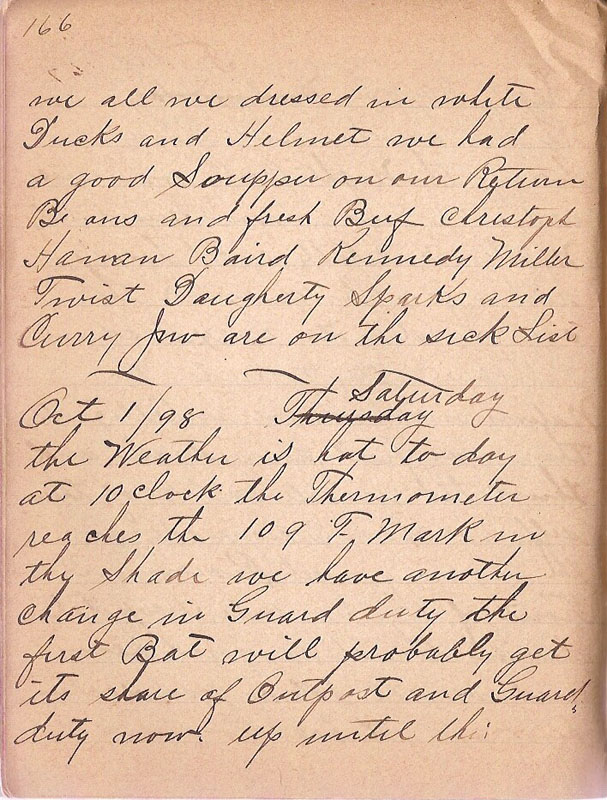 166
we all we dressed in white
Ducks and Helmet we had
a good Soupper on our Return
Be ans and fresh Beef Christoph
Hanan Baird Kennedy Miller
Twist Daugherty Sparks and
Curry Jno are on the sick List
Oct 1/98 Thursday Saturday
the Weather is hot to day
at 10 clock the Thermometer
reaches the 109 F Mark in
thy Shade we have another
change in Guard duty the
first Bat will probably get
its share of Outpost and Guard
duty now. up until